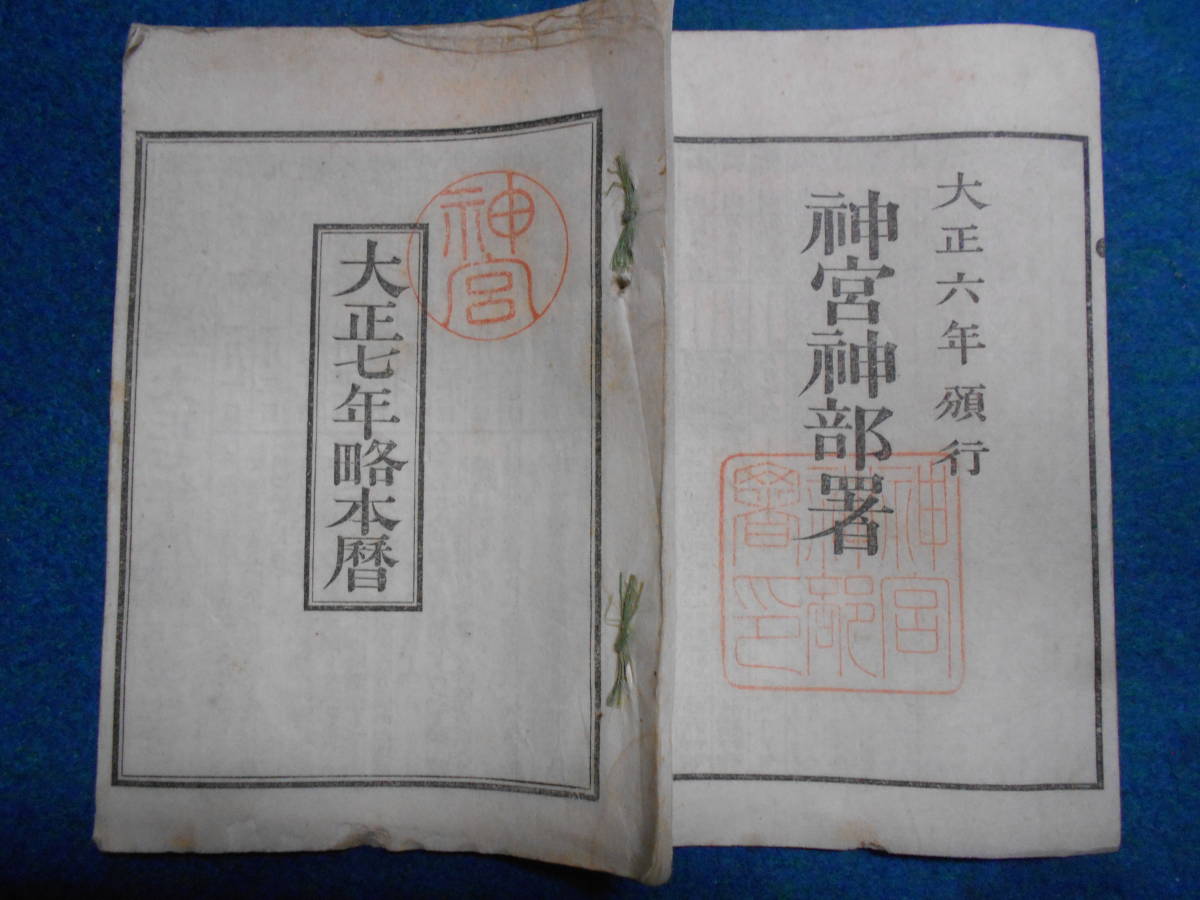 大正六年頒行
神宮神部署
神宮神部署印
神宮
大正七年略本暦